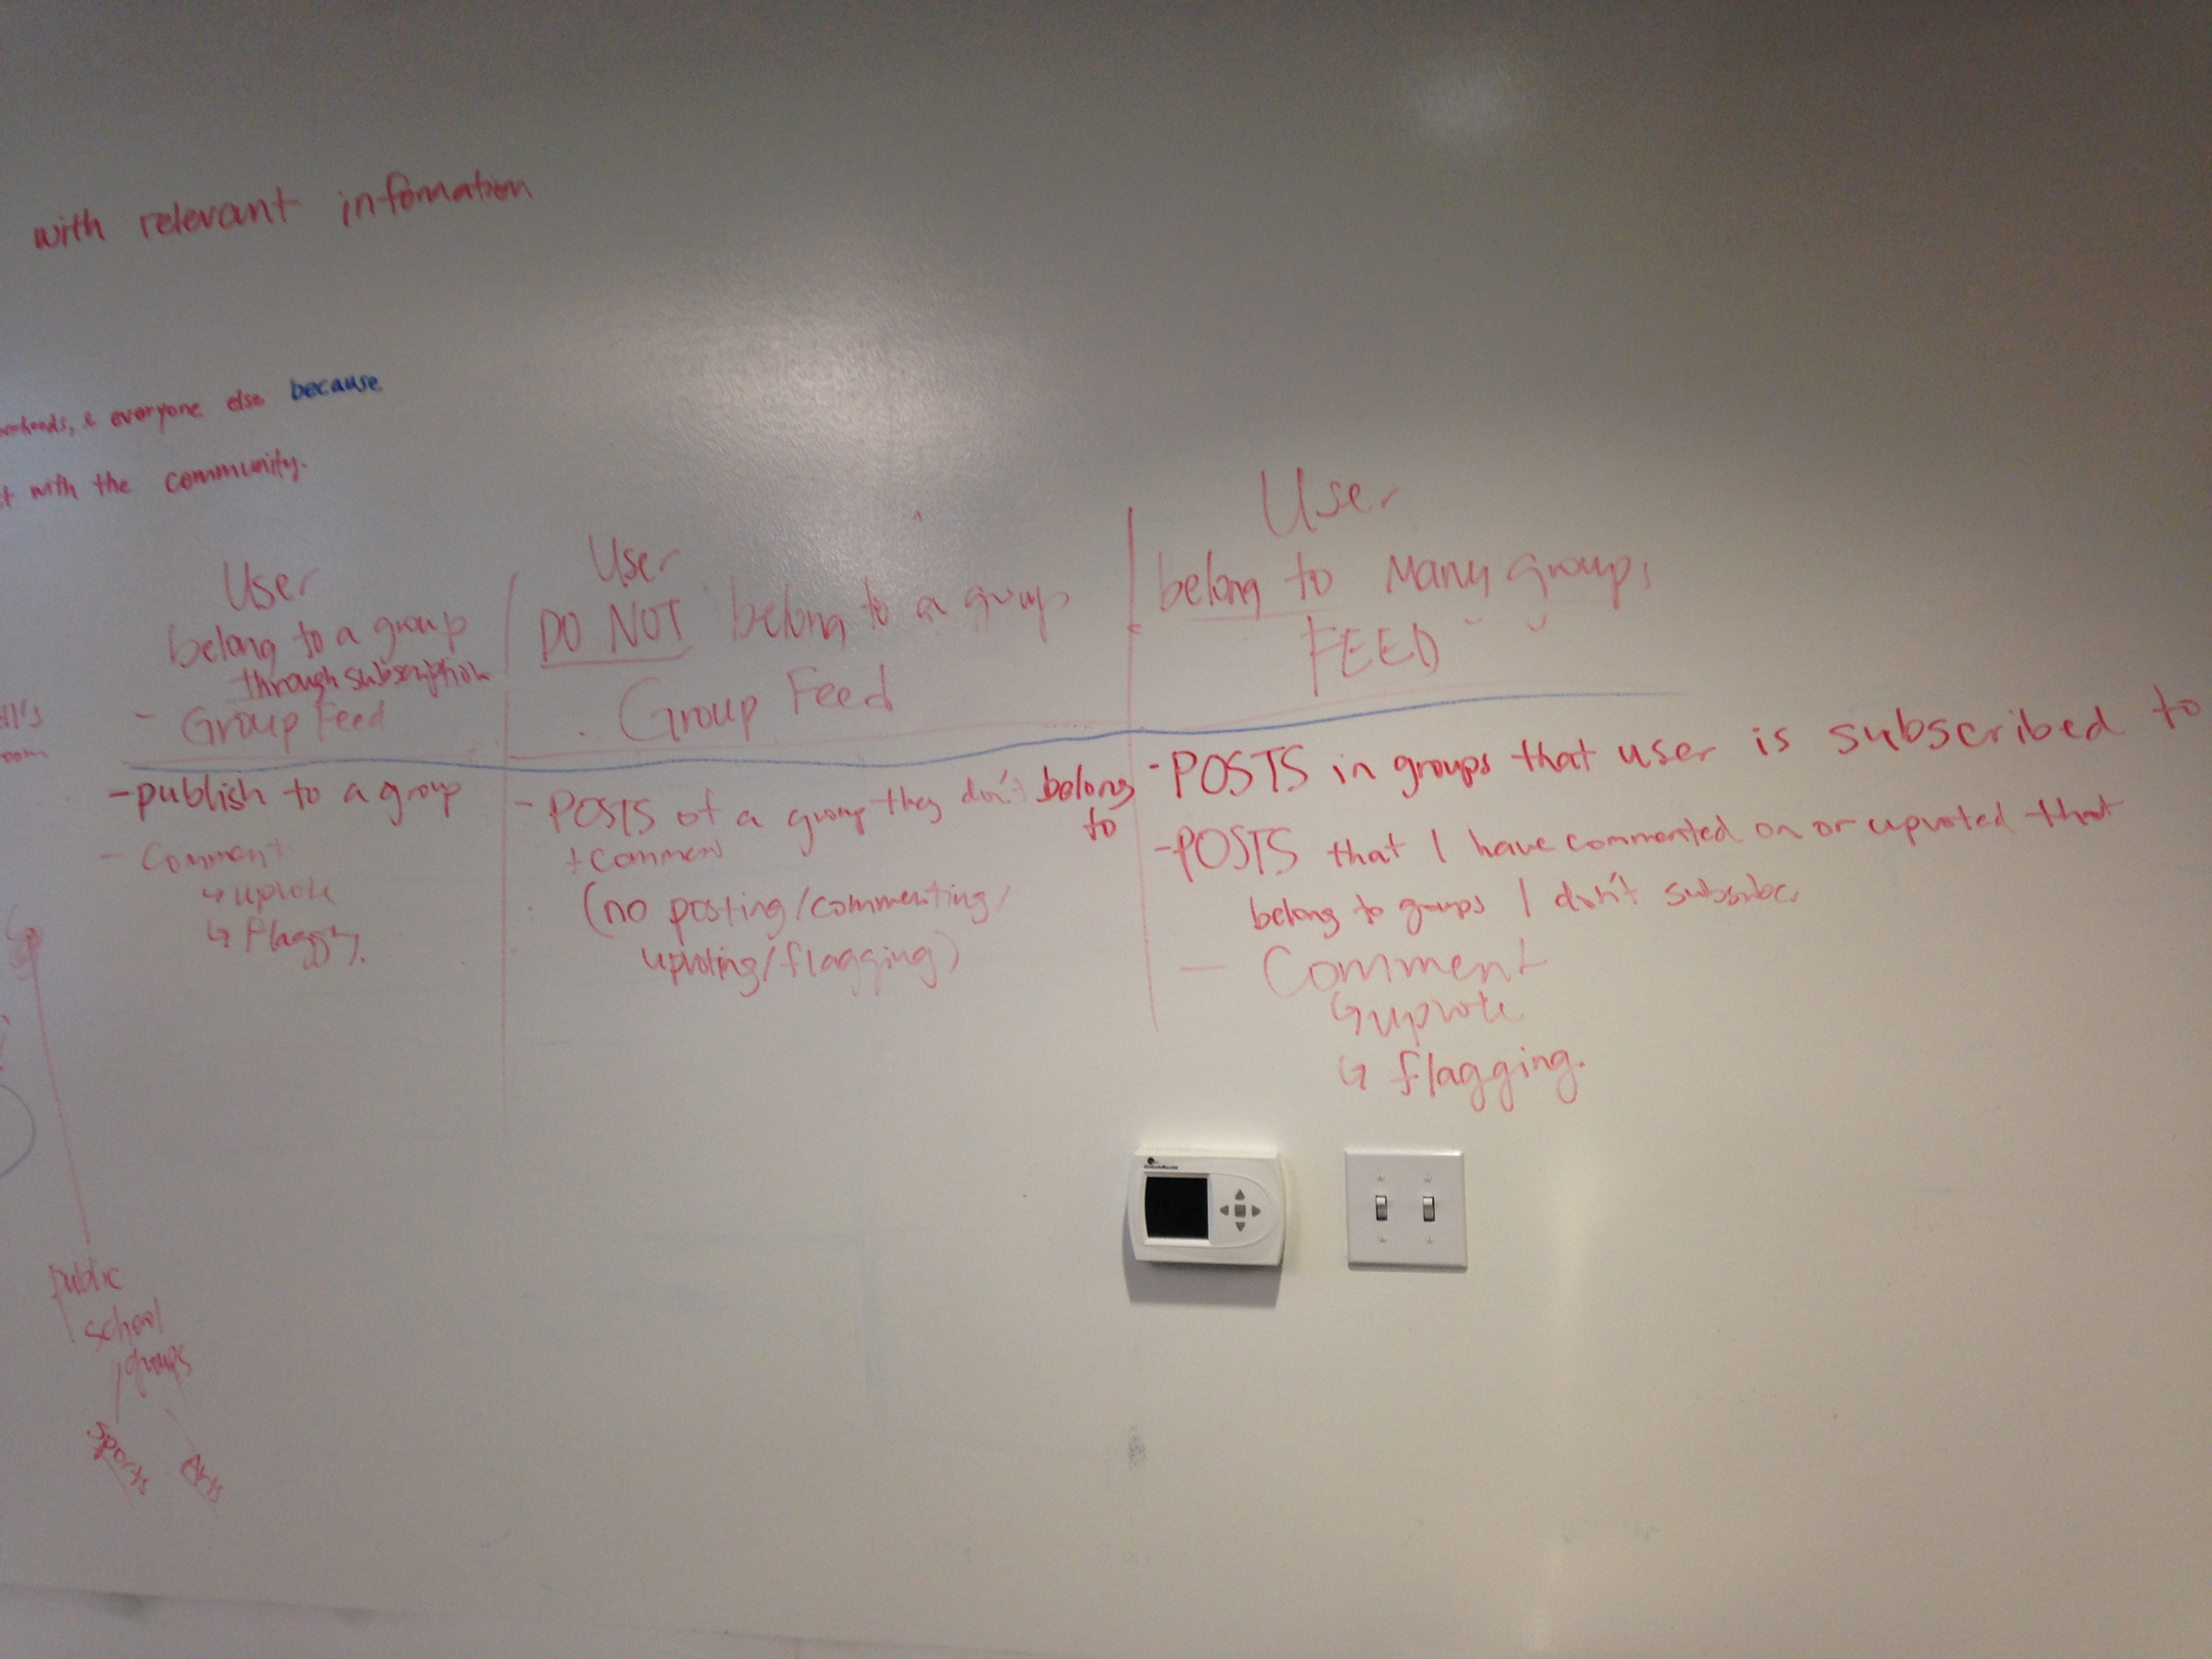 with relevant infomation
& everyone else because
with the community.
User
belong to a group
through subscription
- Group Feed
- publish to a group
- Comment
↳ upvote
↳ flagging.
User
DO NOT belong to a group
. Group Feed
- POSTS of a group they don't belong
to
+ comment
(no posting/commenting/
upvoting/flagging)
User
belong to Many groups
FEED
- POSTS in groups that user is subscribed to
- POSTS that I have commented on or upvoted that
belong to groups I don't subscribe.
- Comment
↳ upvote
↳ flagging.
public
school
groups
Sports
Arts